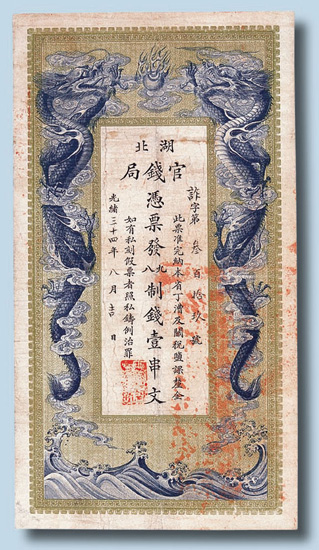 湖北
官錢局
憑票發九八制錢壹串文
詐字第叁百拾玖號
此票准完納本省丁漕及關稅鹽課釐金
如有私刻假票者照私鑄例治罪
光緒二十四年八月吉日